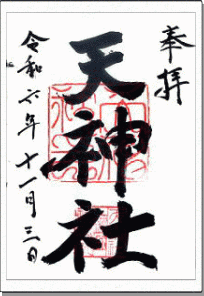 奉拝
天神社
令和六年十一月三日